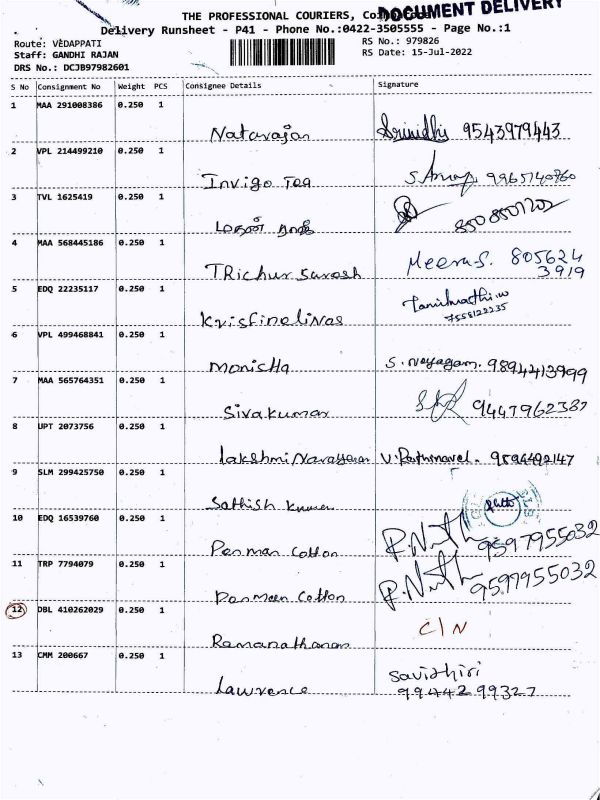 DOCUMENT DELIVERY
THE PROFESSIONAL COURIERS,
Delivery Runsheet - P41 - Phone No.:0422-3505555 - Page No.:1
Route: VEDAPPATI
Staff: GANDHI RAJAN
DRS No.: DCJB97982601
RS No.: 979826
RS Date: 15-Jul-2022
S No Consignment No Weight PCS Consignee Details Signature
1 MAA 291008386 0.250 1
Natarajan Srinidhi 9543979443
2 VPL 214499210 0.250 1
Invigo Tea S. 9965740760
3 TVL 1625419 0.250 1
8508501202
4 MAA 568445186 0.250 1
TRichur Suresh Meena S. 805624
3919
5 EDQ 22235117 0.250 1
Tamilmathi.w
7558122235
6 VPL 499468841 0.250 1
Monisha S. Nayagam. 98944413999
7 MAA 565764351 0.250 1
Sivakumar 9447962387
8 UPT 2073756 0.250 1
Lakshmi Narayanan V. 9594492147
9 SLM 299425750 0.250 1
Sathish Kumar
10 EDQ 16539760 0.250 1
Penman Cotton R. Nith 9597955032
11 TRP 7794079 0.250 1
Penman Cotton R. Nith 9597955032
12 DBL 410262029 0.250 1
Ramanathanan C/N
13 CMM 200667 0.250 1
Lawrence Savithiri
99442 99327